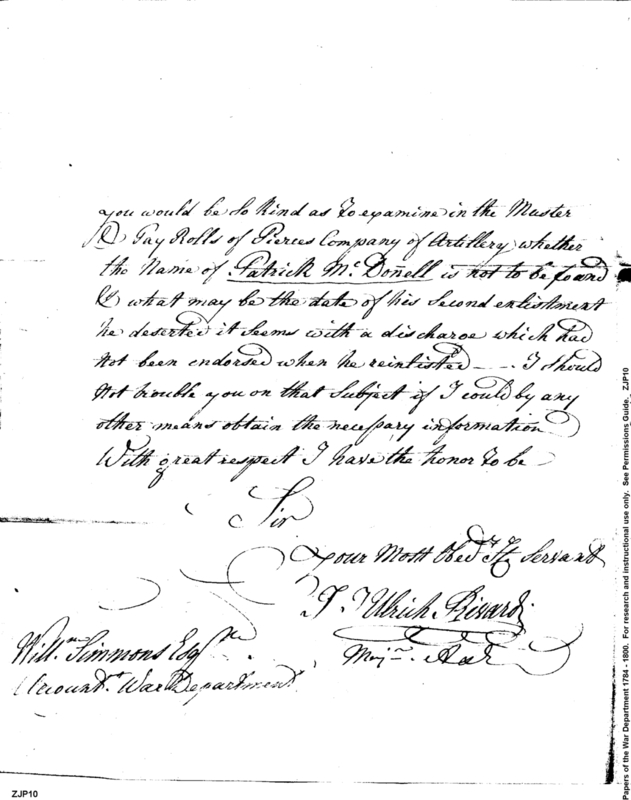 you would be so kind as to examine in the Muster
& Pay Rolls of Pierces Company of Artillery whether
the Name of Patrick Mc Donell is not to be found
& what may be the date of his Second enlistment
he deserted it seems with a discharge which had
not been endorsed when he reinlisted --- I should
not trouble you on that subject if I could by any
other means obtain the necessary information
With great respect I have the honor to be
Sir
your Most Obed Servant
J. J. Ulrich Rivardi
Majr.
Willm. Simmons Esqre
Accountt. War Department
Papers of the War Department 1784 - 1800. For research and instructional use only. See Permissions Guide. ZJP10
ZJP10